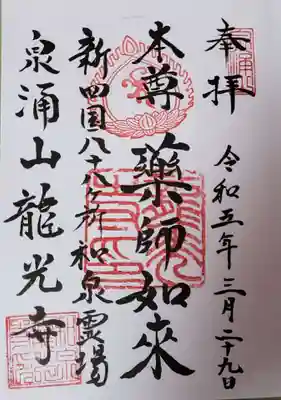 奉拝
令和五年三月二十九日
本尊 薬師如来
新四国八十八ヶ所和泉霊場
泉涌山龍光寺